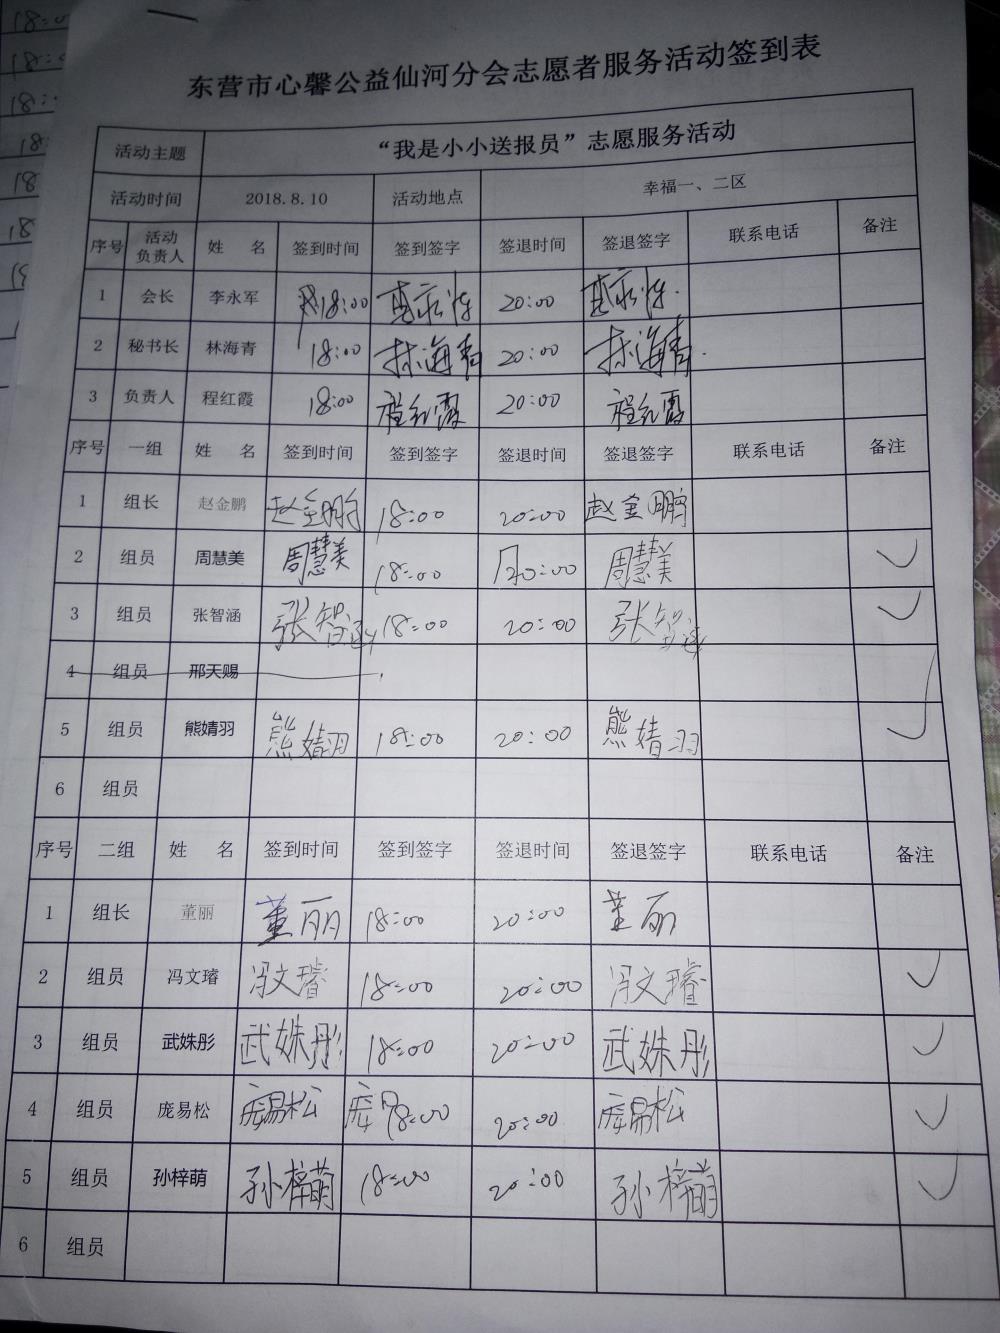 东营市心馨公益仙河分会志愿者服务活动签到表
活动主题 “我是小小送报员”志愿服务活动
活动时间 2018.8.10 活动地点 幸福一、二区
序号 活动负责人 姓 名 签到时间 签到签字 签退时间 签退签字 联系电话 备注
1 会长 李永军 18:00 20:00
2 秘书长 林海青 18:00 林海青 20:00 林海青
3 负责人 程红霞 18:00 程红霞 20:00 程红霞
序号 一组 姓 名 签到时间 签到签字 签退时间 签退签字 联系电话 备注
1 组长 赵金鹏 赵金鹏 18:00 20:00 赵金鹏
2 组员 周慧美 周慧美 18:00 20:00 周慧美 ✓
3 组员 张智涵 张智涵 18:00 20:00 张智涵 ✓
4 组员 邢天赐
5 组员 熊婧羽 熊婧羽 18:00 20:00 熊婧羽 ✓
6 组员
序号 二组 姓 名 签到时间 签到签字 签退时间 签退签字 联系电话 备注
1 组长 董丽 董丽 18:00 20:00 董丽
2 组员 冯文璿 冯文璿 18:00 20:00 冯文璿 ✓
3 组员 武姝彤 武姝彤 18:00 20:00 武姝彤 ✓
4 组员 庞易松 庞易松 18:00 20:00 庞易松 ✓
5 组员 孙梓萌 孙梓萌 18:00 20:00 孙梓萌 ✓
6 组员